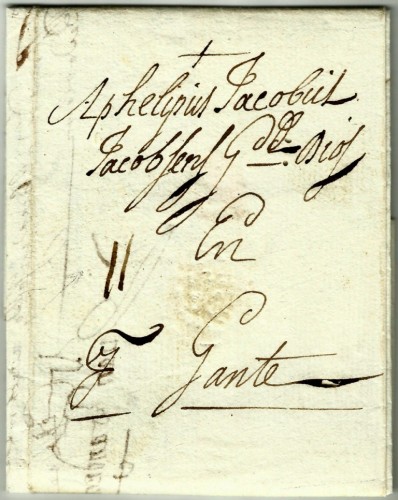 Aphelipus Jacobus
Jacobsens Gᵈᵉ Dios
En
Gante